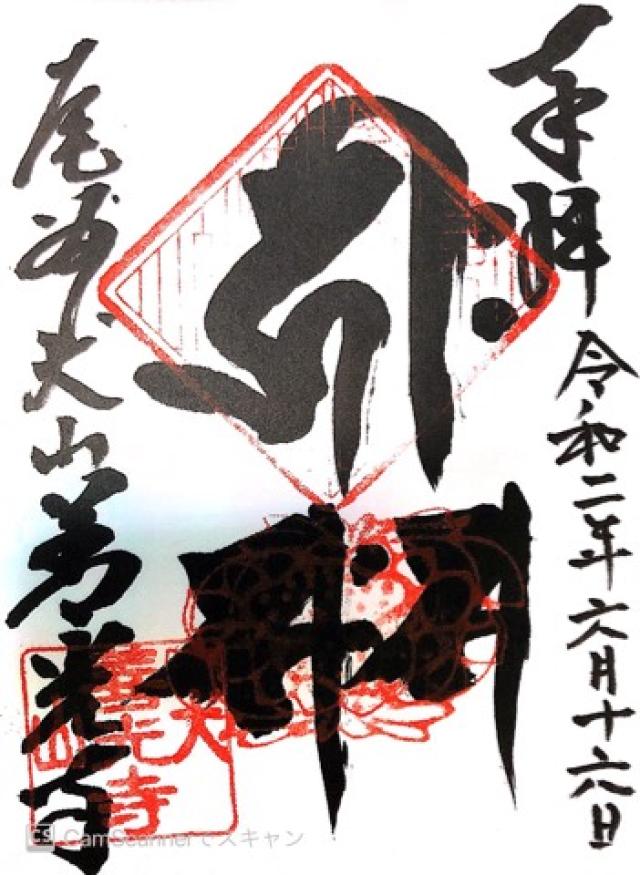 奉拝 令和二年六月十六日
尾州犬山善光寺
犬山
善光寺
CS CamScannerでスキャン